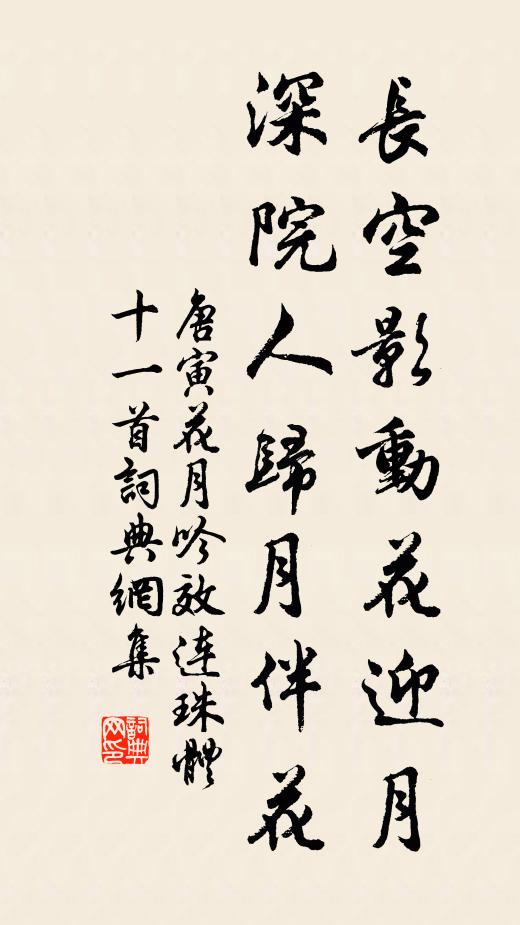 長空影動花迎月
深院人歸月伴花
唐寅花月吟效連珠體
十一首詞典網集
詞典
网印